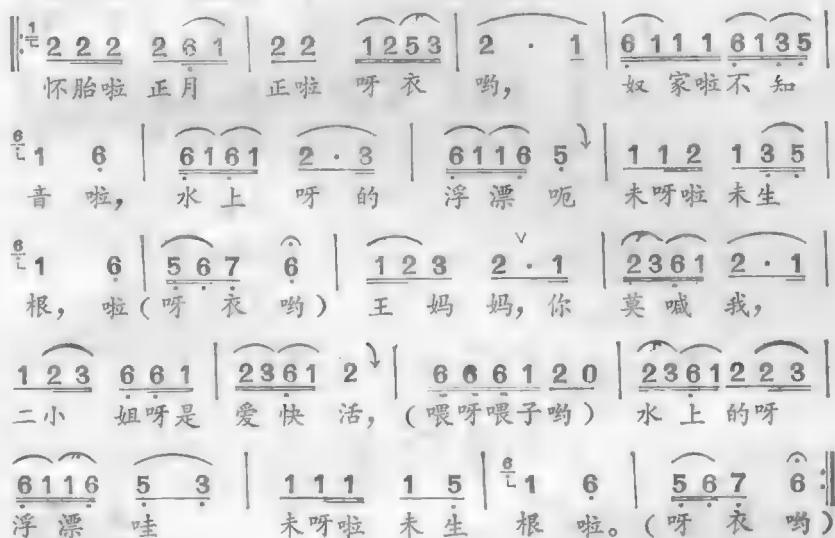 1 2 2 2 2 6 1 | 2 2 1 2 5 3 | 2 · 1 | 6 1 1 1 6 1 3 5
怀胎啦 正月 正啦 呀衣 哟， 奴家啦不知
6 1 6 | 6 1 6 1 2 · 3 | 6 1 1 6 5 | 1 1 2 1 3 5
音 啦， 水上 呀的 浮漂呃 未呀啦未生
6 1 6 | 5 6 7 6 | 1 2 3 2 · 1 | 2 3 6 1 2 · 1
根， 啦（呀衣 哟） 王妈妈，你 莫喊我，
1 2 3 6 6 1 | 2 3 6 1 2 | 6 6 6 1 2 0 | 2 3 6 1 2 2 3
二小 姐呀是 爱快 活，（喂呀喂子哟） 水上的呀
6 1 1 6 5 3 | 1 1 1 1 5 | 6 1 6 | 5 6 7 6
浮漂 哇 未呀啦 未生 根 啦。（呀衣 哟）